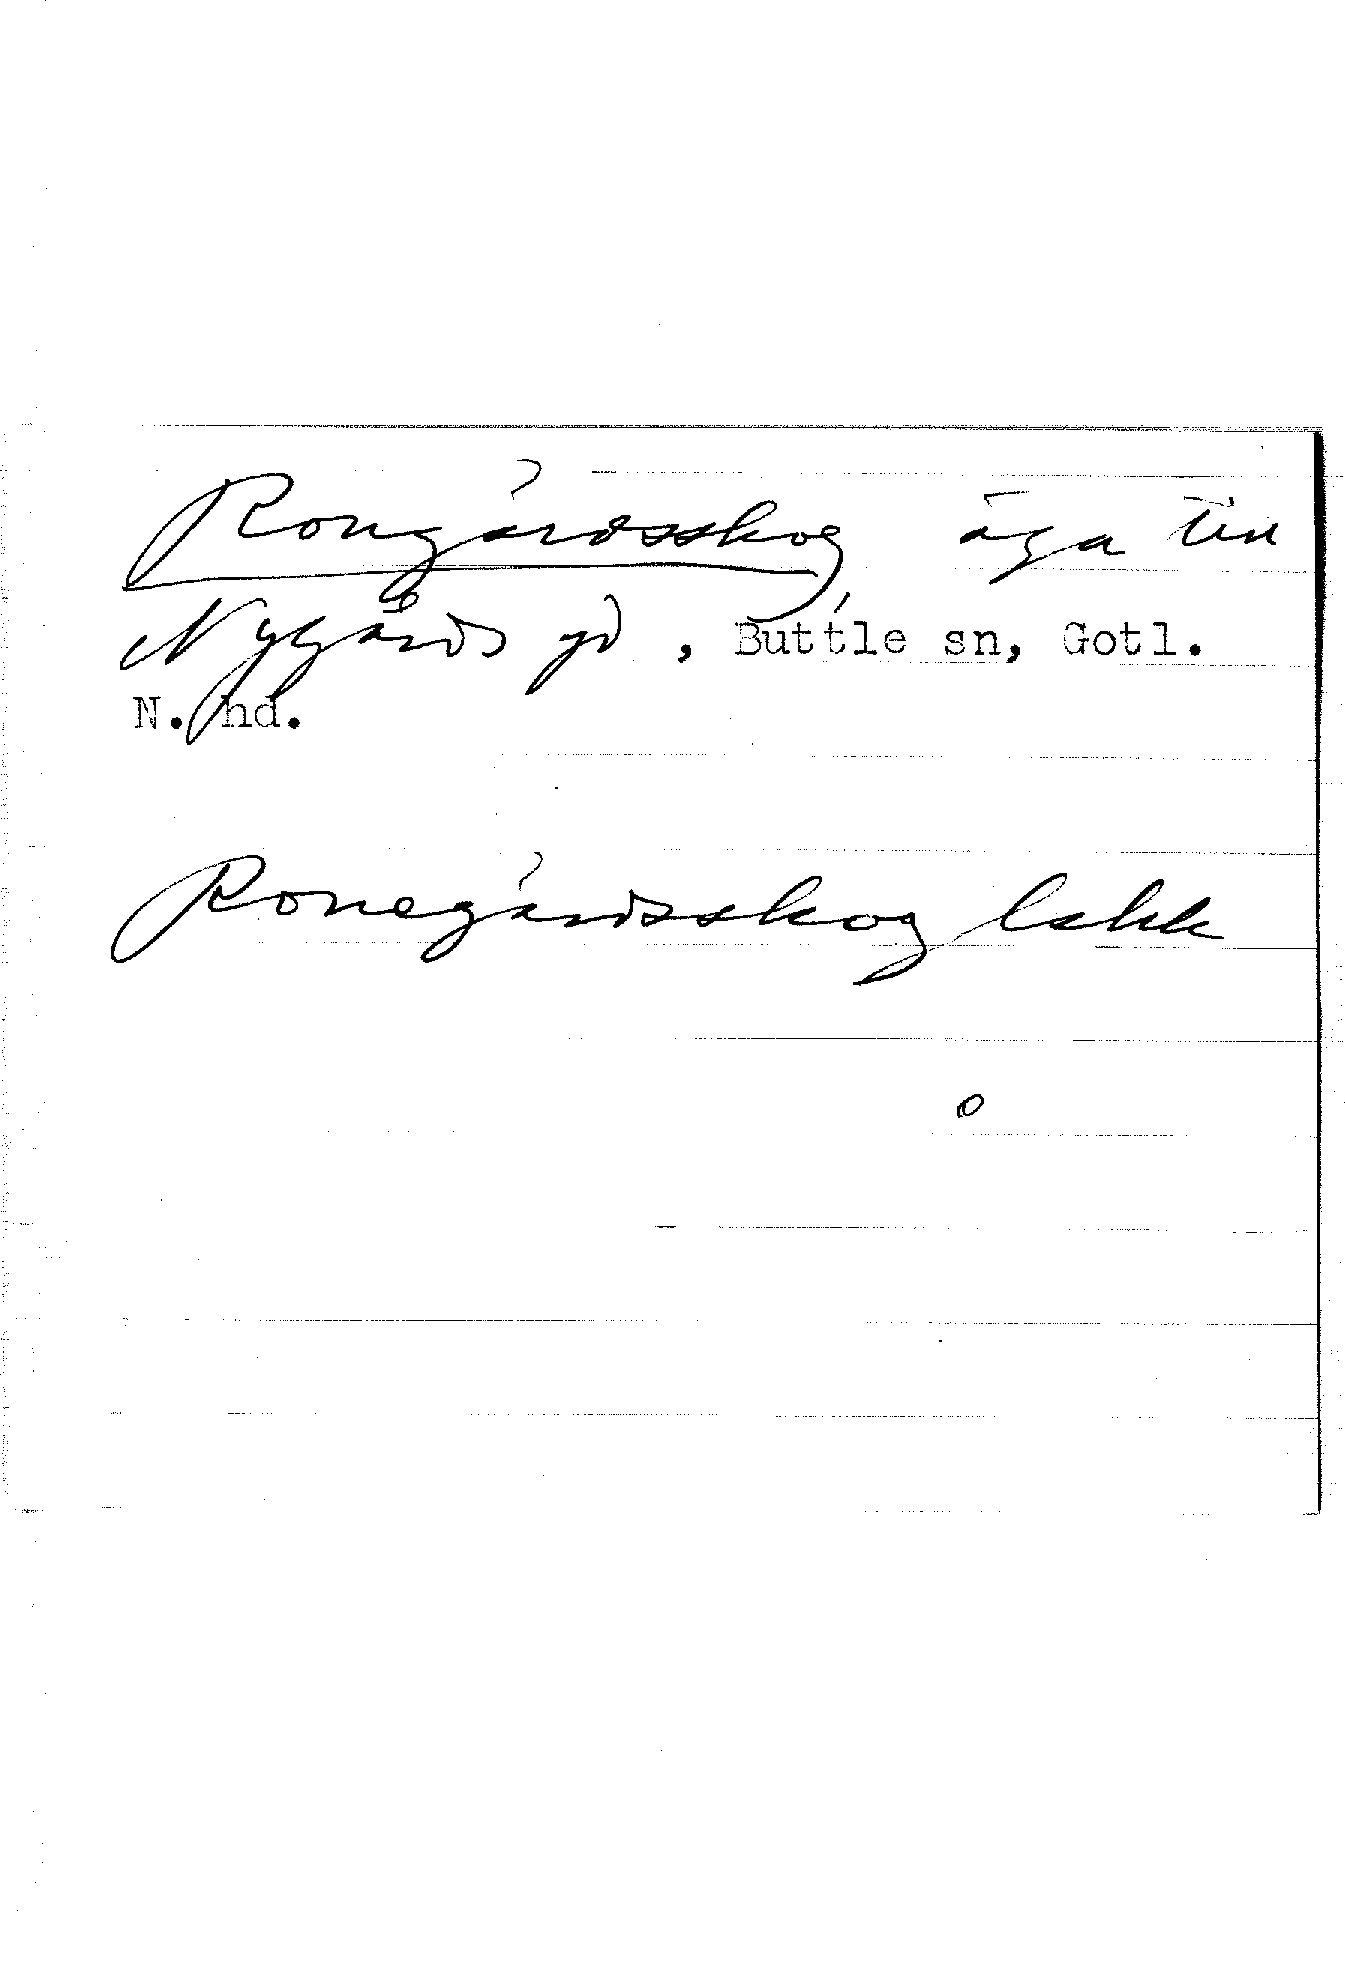 Rongårdsskog, äga till
Nygårds gd, Buttle sn, Gotl.
N. hd.
Ronegårdsskog lskk